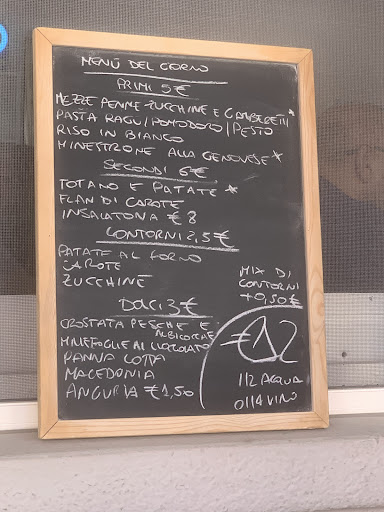 MENÙ DEL GIORNO
PRIMI 5€
MEZZE PENNE ZUCCHINE E GAMBERETTI
PASTA RAGU/POMODORO/PESTO
RISO IN BIANCO
MINESTRONE ALLA GENOVESE*
SECONDI 6€
TOTANO E PATATE *
FLAN DI CAROTE
INSALATONA €8
CONTORNI 2,5€
PATATE AL FORNO
CAROTE
ZUCCHINE
MIX DI
CONTORNI
+0,50€
DOLCI 3€
CROSTATA PESCHE E
ALBICOCCHE
MILLEFOGLIE AL CIOCCOLATO
PANNA COTTA
MACEDONIA
ANGURIA €1,50
€12
1/2 ACQUA
O 1/4 VINO